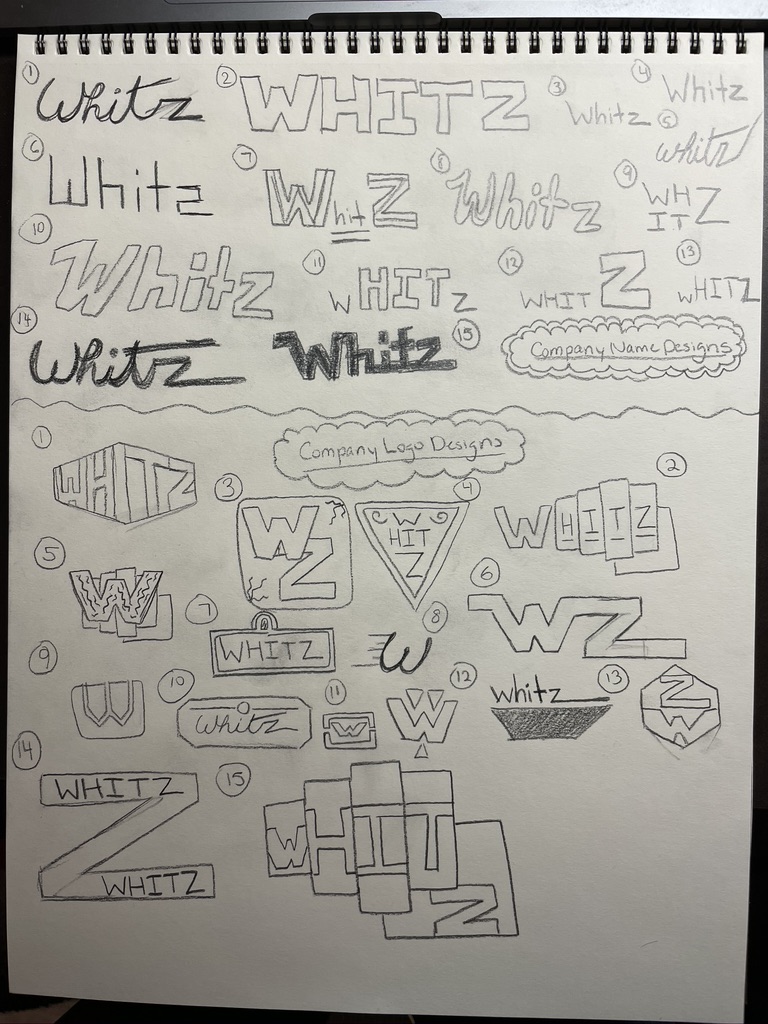 1 Whitz 2 WHITZ 3 Whitz 4 Whitz
5 Whitz
6 Whitz 7 WhitZ 8 Whitz 9 WH
ITZ
10 Whitz 11 WHITZ 12 WHITZ 13 WHITZ
14 Whitz Whitz 15 Company Name Designs
Company Logo Designs
1 WHITZ 2 WHITZ
3 WZ 4 W
HIT
Z
5 W 6 WZ
7 WHITZ 8 W
9 W 10 Whitz 11 W 12 W whitz 13 Z
W
14 WHITZ
Z
WHITZ
15 WHITZ